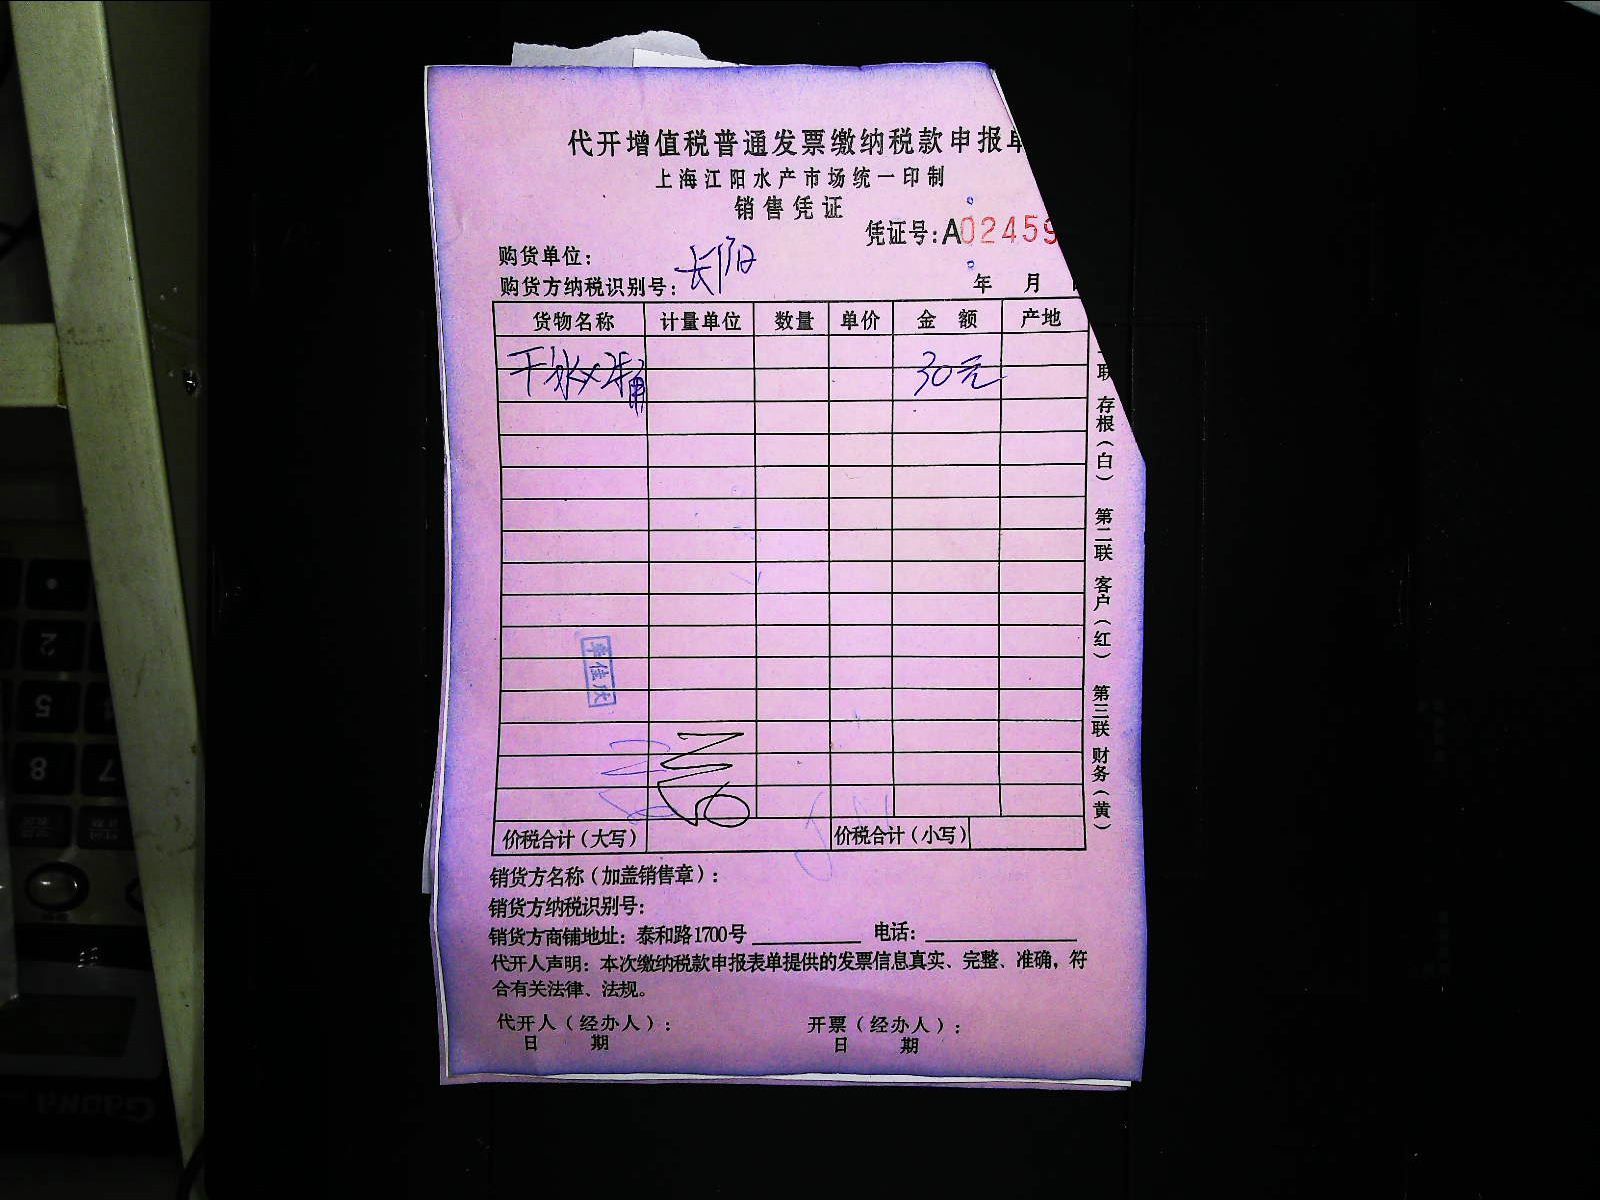 代开增值税普通发票缴纳税款申报单
上海江阳水产市场统一印制
销售凭证
凭证号:A02459
购货单位:
长阳
购货方纳税识别号:
年 月
货物名称 计量单位 数量 单价 金 额 产地
干冰X2箱 30元
价税合计(大写) 价税合计(小写)
李佳欣
一联 存根(白) 第二联 客户(红) 第三联 财务(黄)
销货方名称(加盖销售章):
销货方纳税识别号:
销货方商铺地址: 泰和路1700号 电话:
代开人声明: 本次缴纳税款申报表单提供的发票信息真实、完整、准确, 符
合有关法律、法规。
代开人(经办人): 开票(经办人):
日 期 日 期
2
5
8 7